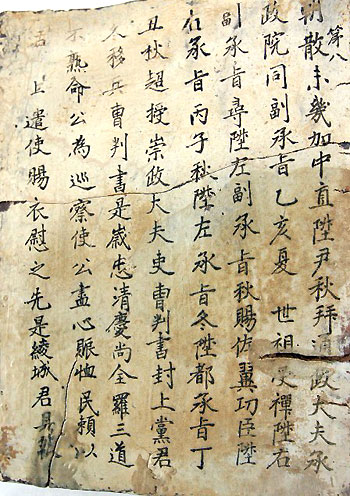 第八
朝散未幾加中直陞尹秋拜通政大夫承
政院同副承旨乙亥夏 世祖受禪陞右
副承旨尋陞左副承旨秋賜佐翼功臣陞
右承旨丙子秋陞左承旨冬陞都承旨丁
丑秋超授崇政大夫吏曹判書封上黨君
冬移兵曹判書是歲忠清慶尚全羅三道
不熟命公為巡察使公盡心賑恤民頼以
活 上遣使賜衣慰之先是綾城君具致